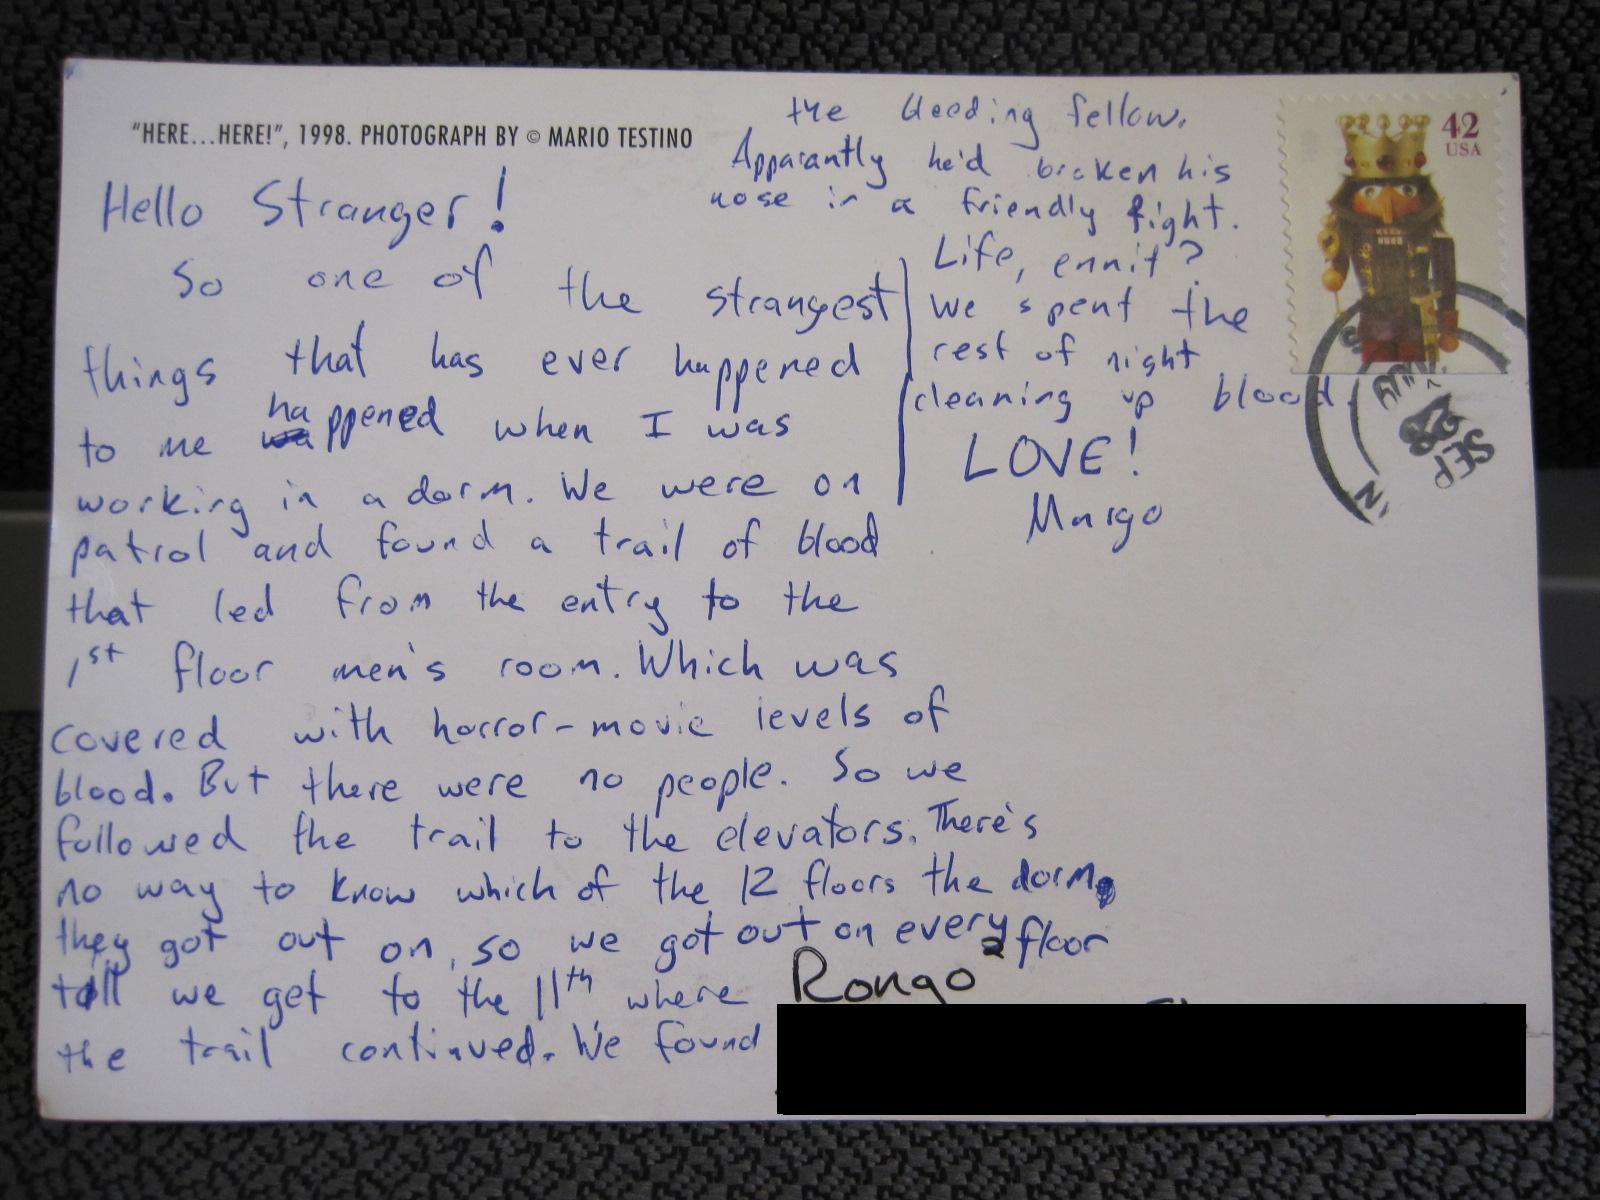 "HERE...HERE!", 1998. PHOTOGRAPH BY © MARIO TESTINO
Hello Stranger!
So one of the strangest
things that has ever happened
to me happened when I was
working in a dorm. We were on
patrol and found a trail of blood
that led from the entry to the
1st floor men's room. Which was
covered with horror-movie levels of
blood. But there were no people. So we
followed the trail to the elevators. There's
no way to know which of the 12 floors the dorm,
they got out on, so we got out on every floor
till we get to the 11th where
the trail continued. We found
the bleeding fellow.
Apparantly he'd broken his
nose in a friendly fight.
Life, ennit?
We spent the
rest of night
cleaning up blood.
LOVE!
Margo
Rongo
42
USA
SEP
28